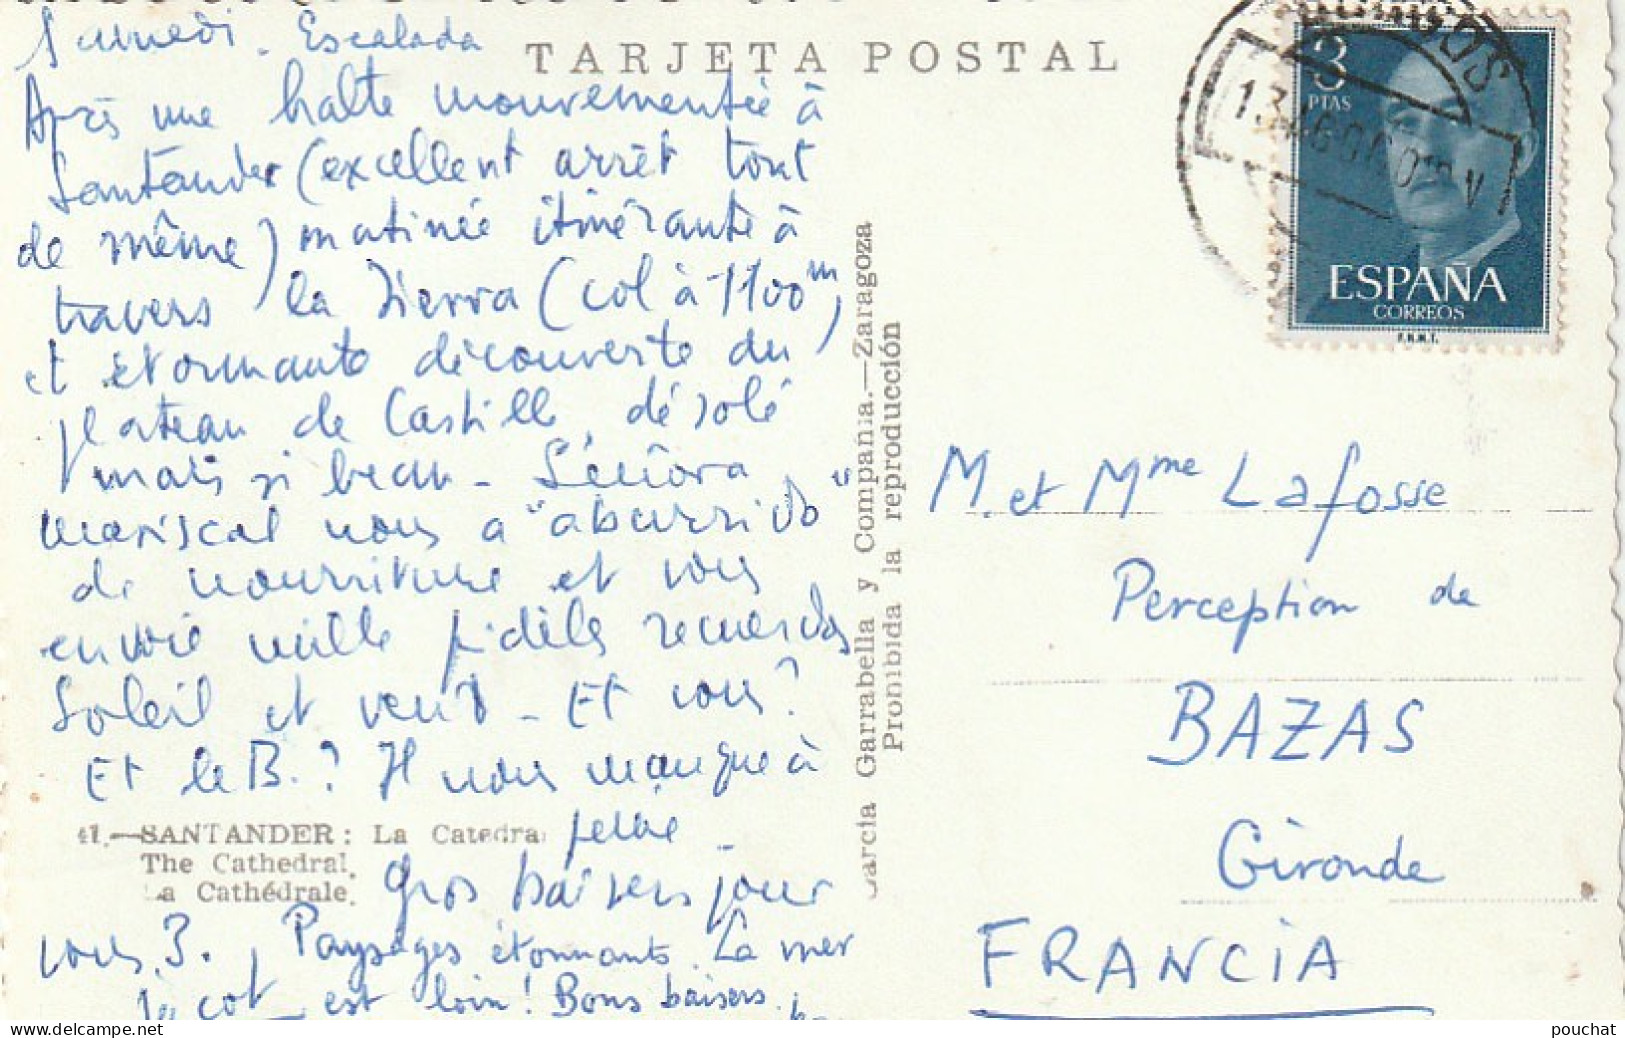 Samedi - Escalada
TARJETA POSTAL
Après une halte mouvementée à
Santander (excellent arrêt tout
de même) matinée itinérante à
travers la Sierra (col à 1100 m,
et étonnante découverte du
plateau de Castille, désolé
mais si beau - Señora
Mariscal nous a "aburrido"
de nourriture et vous
envoie mille fidèles recuerdos
Soleil et vent - Et vous ?
Et le B. ? Il nous manque à
peine -
Gros baisers pour
vous 3. Paysages étonnants. La mer
est loin ! Bons baisers.
41.—SANTANDER: La Catedra
The Cathedral.
La Cathédrale.
Garcia Garrabella y Compañia.—Zaragoza
Prohibida la reproducción
BURGOS
3
PTAS
ESPAÑA
CORREOS
F.N.M.T.
M. et Mme Lafosse
Perception de
BAZAS
Gironde
FRANCIA
pouchat